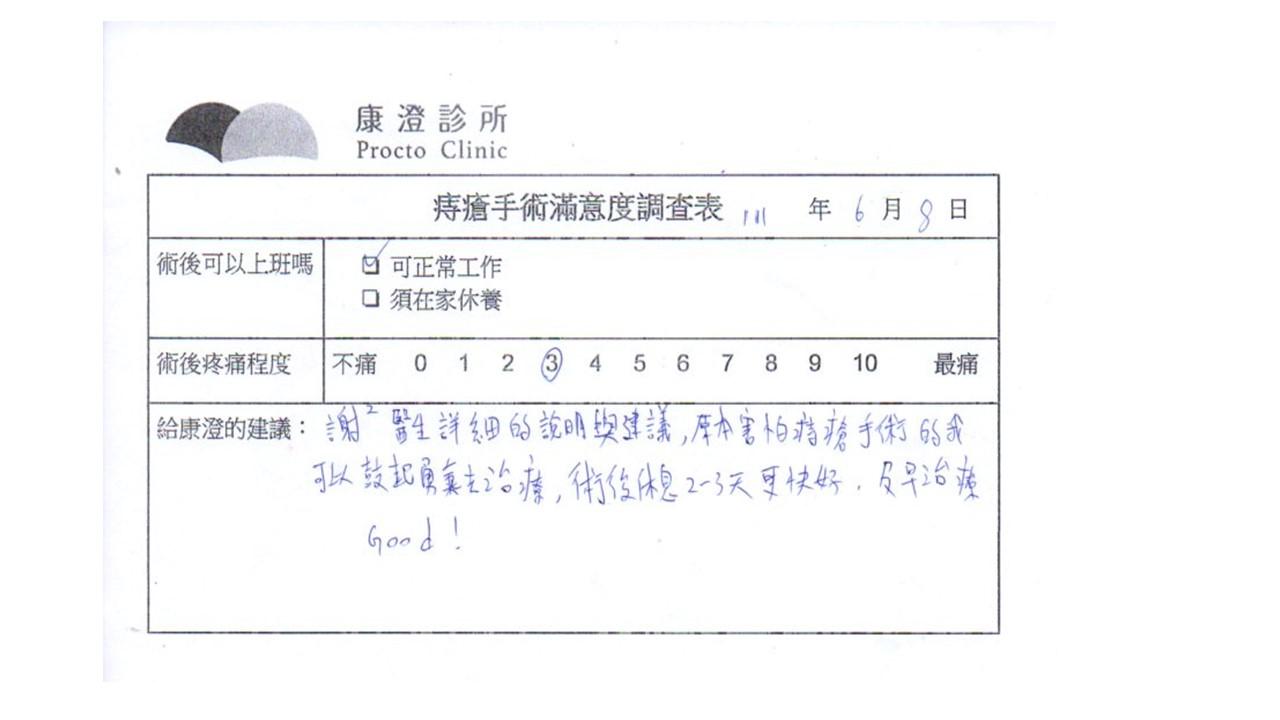 康澄診所
Procto Clinic
痔瘡手術滿意度調查表 111 年 6 月 8 日
術後可以上班嗎 ☑ 可正常工作
☐ 須在家休養
術後疼痛程度 不痛 0 1 2 3 4 5 6 7 8 9 10 最痛
給康澄的建議： 謝² 醫生詳細的說明與建議,原本害怕痔瘡手術的我
可以鼓起勇氣去治療,術後休息2-3天更快好.及早治療
Good!